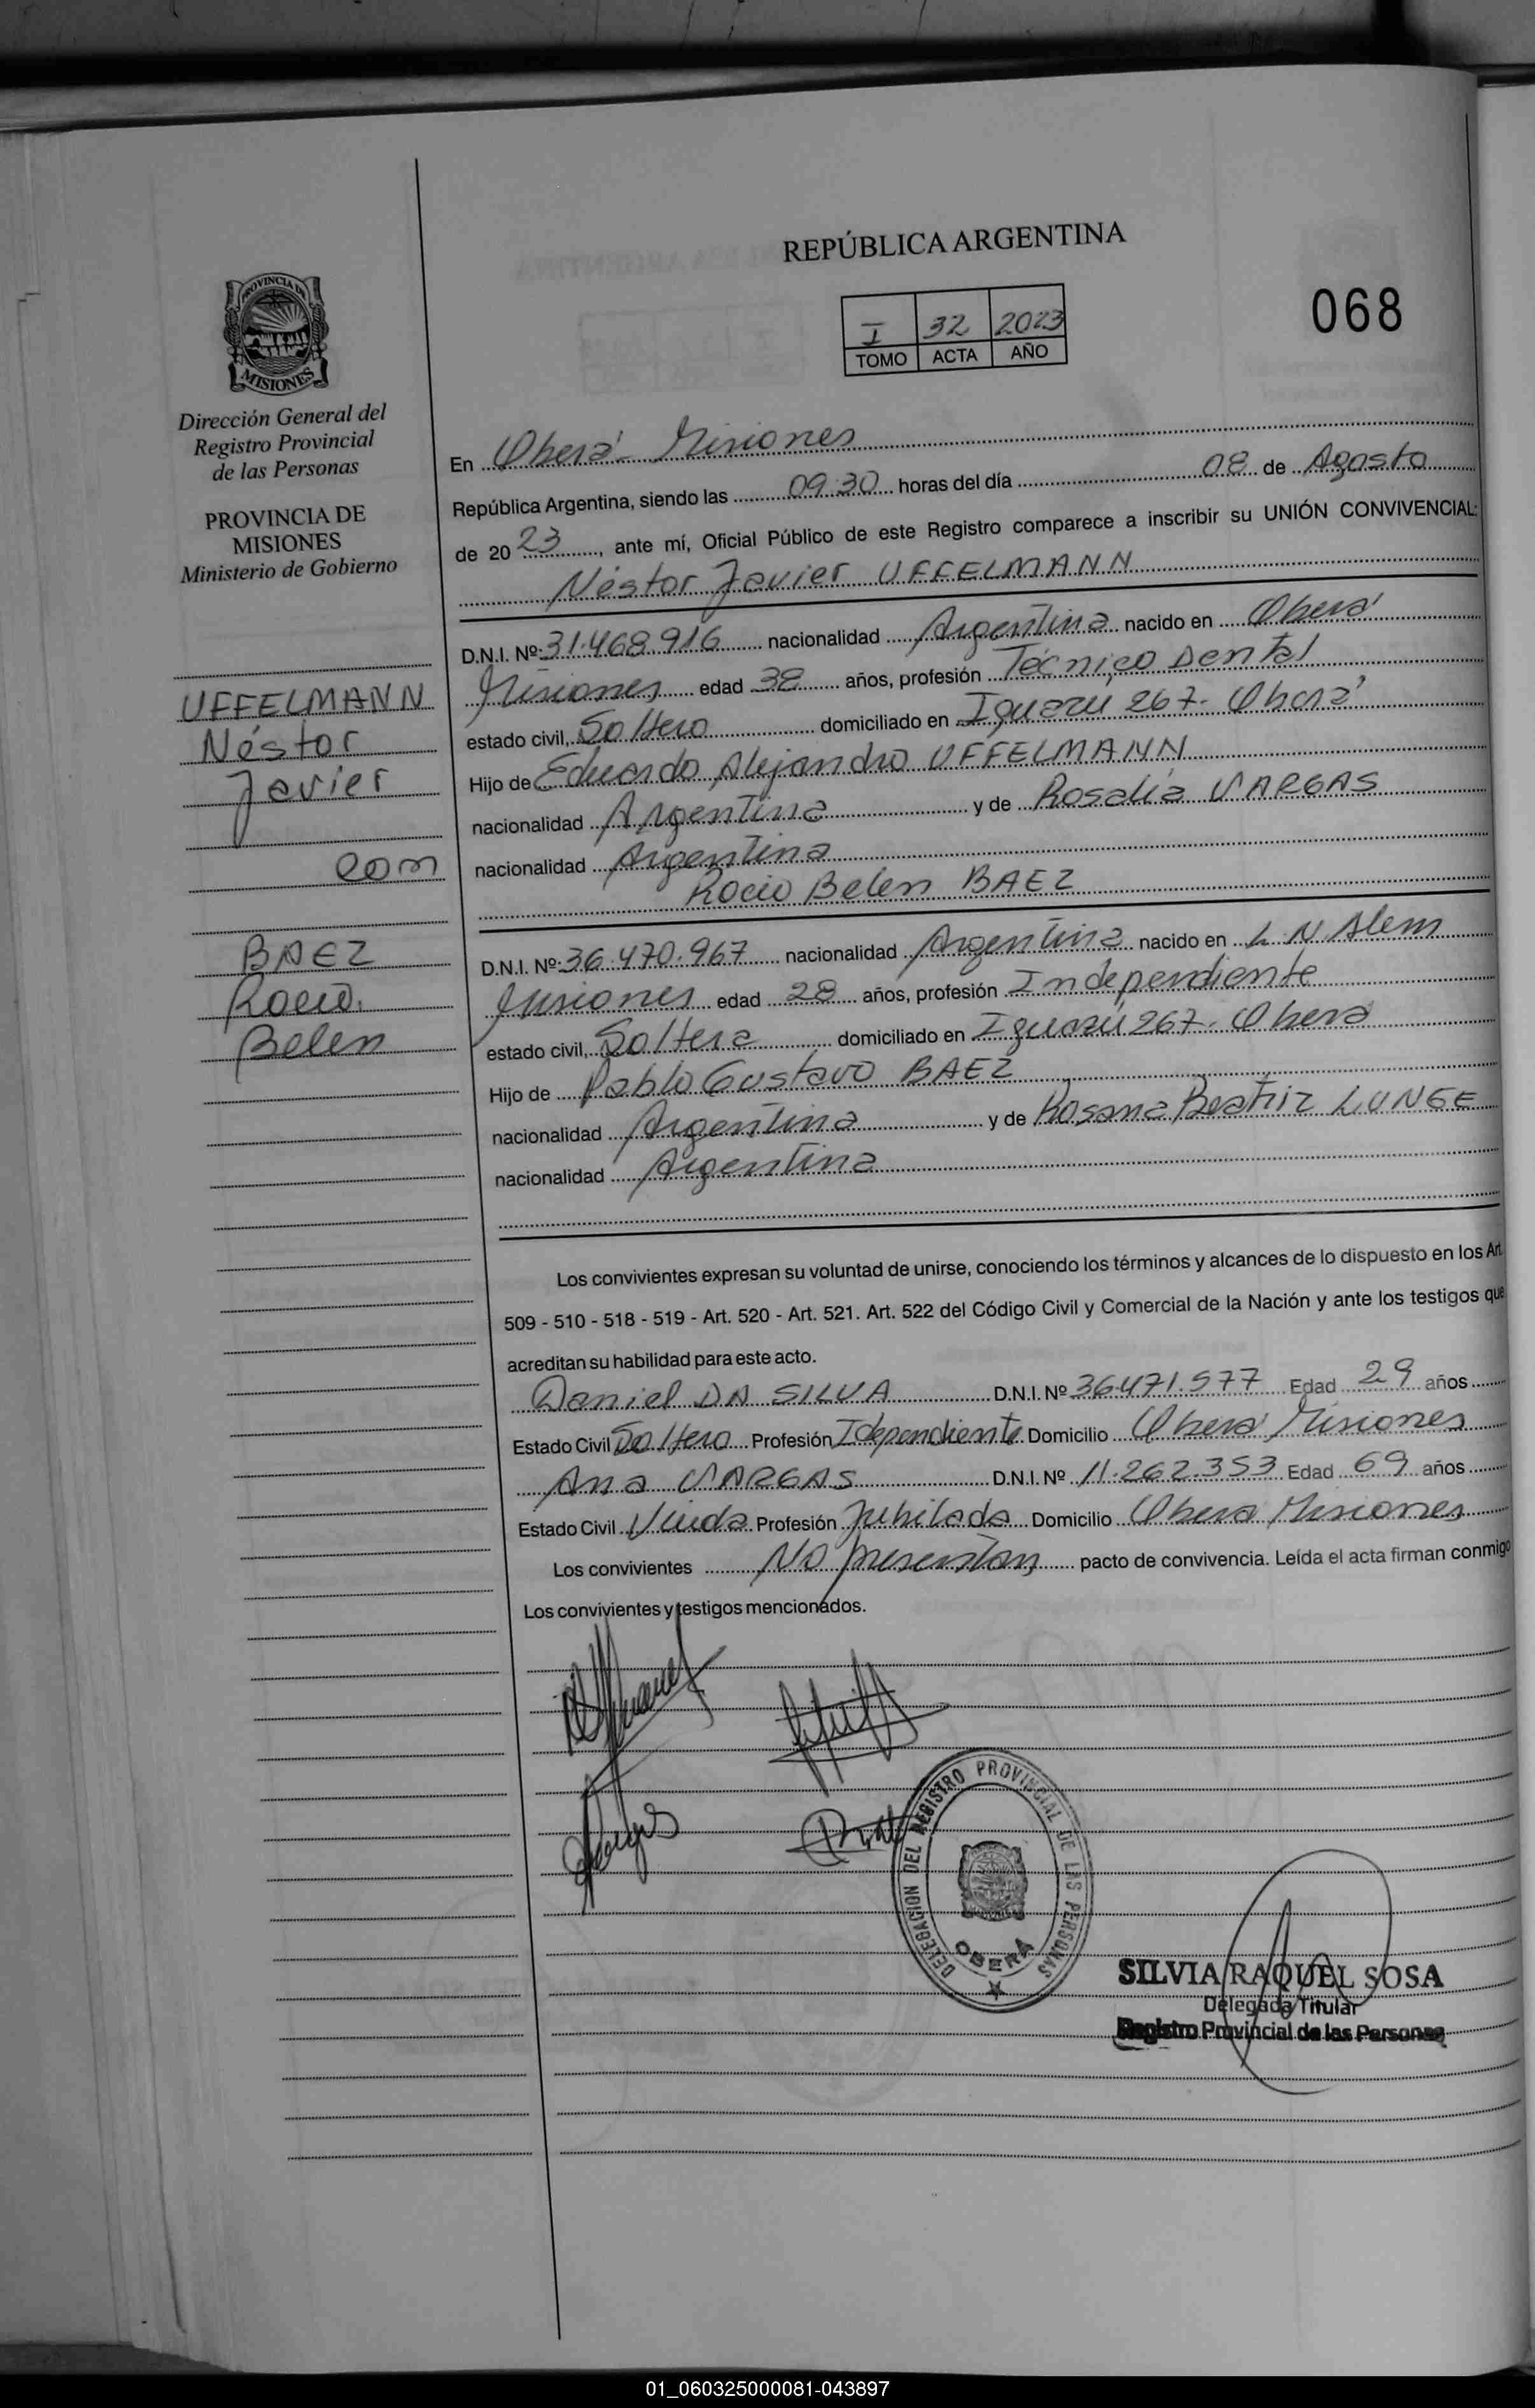 REPÚBLICA ARGENTINA
068
I 32 2023
TOMO ACTA AÑO
PROVINCIA DE
MISIONES
Dirección General del
Registro Provincial
de las Personas
PROVINCIA DE
MISIONES
Ministerio de Gobierno
UFFELMANN
Néstor
Javier
con
BAEZ
Rocio
Belen
En Oberá - Misiones
República Argentina, siendo las 09:30 horas del día 08 de Agosto
de 20 23, ante mí, Oficial Público de este Registro comparece a inscribir su UNIÓN CONVIVENCIAL:
Néstor Javier UFFELMANN
D.N.I. Nº 31.468.916 nacionalidad Argentina nacido en Oberá
Misiones edad 38 años, profesión Técnico Dental
estado civil, Soltero domiciliado en Iguazú 267 - Oberá
Hijo de Eduardo Alejandro UFFELMANN
nacionalidad Argentina y de Rosalía VARGAS
nacionalidad Argentina
Rocio Belen BAEZ
D.N.I. Nº 36.470.967 nacionalidad Argentina nacido en L. N Alem
Misiones edad 28 años, profesión Independiente
estado civil, Soltera domiciliado en Iguazú 267 - Oberá
Hijo de Pablo Gustavo BAEZ
nacionalidad Argentina y de Rosana Beatriz LUNGE
nacionalidad Argentina
Los convivientes expresan su voluntad de unirse, conociendo los términos y alcances de lo dispuesto en los Art.
509 - 510 - 518 - 519 - Art. 520 - Art. 521. Art. 522 del Código Civil y Comercial de la Nación y ante los testigos que
acreditan su habilidad para este acto.
Daniel DA SILVA D.N.I. Nº 36.471.577 Edad 29 años
Estado Civil Soltero Profesión Idependiente Domicilio Oberá Misiones
Ana VARGAS D.N.I. Nº 11.262.353 Edad 69 años
Estado Civil Viuda Profesión Jubilada Domicilio Oberá Misiones
Los convivientes No presentan pacto de convivencia. Leída el acta firman conmigo
Los convivientes y testigos mencionados.
DELEGACION DEL REGISTRO PROVINCIAL DE LAS PERSONAS
OBERA
SILVIA RAQUEL SOSA
Delegada Titular
Registro Provincial de las Personas
01_060325000081-043897